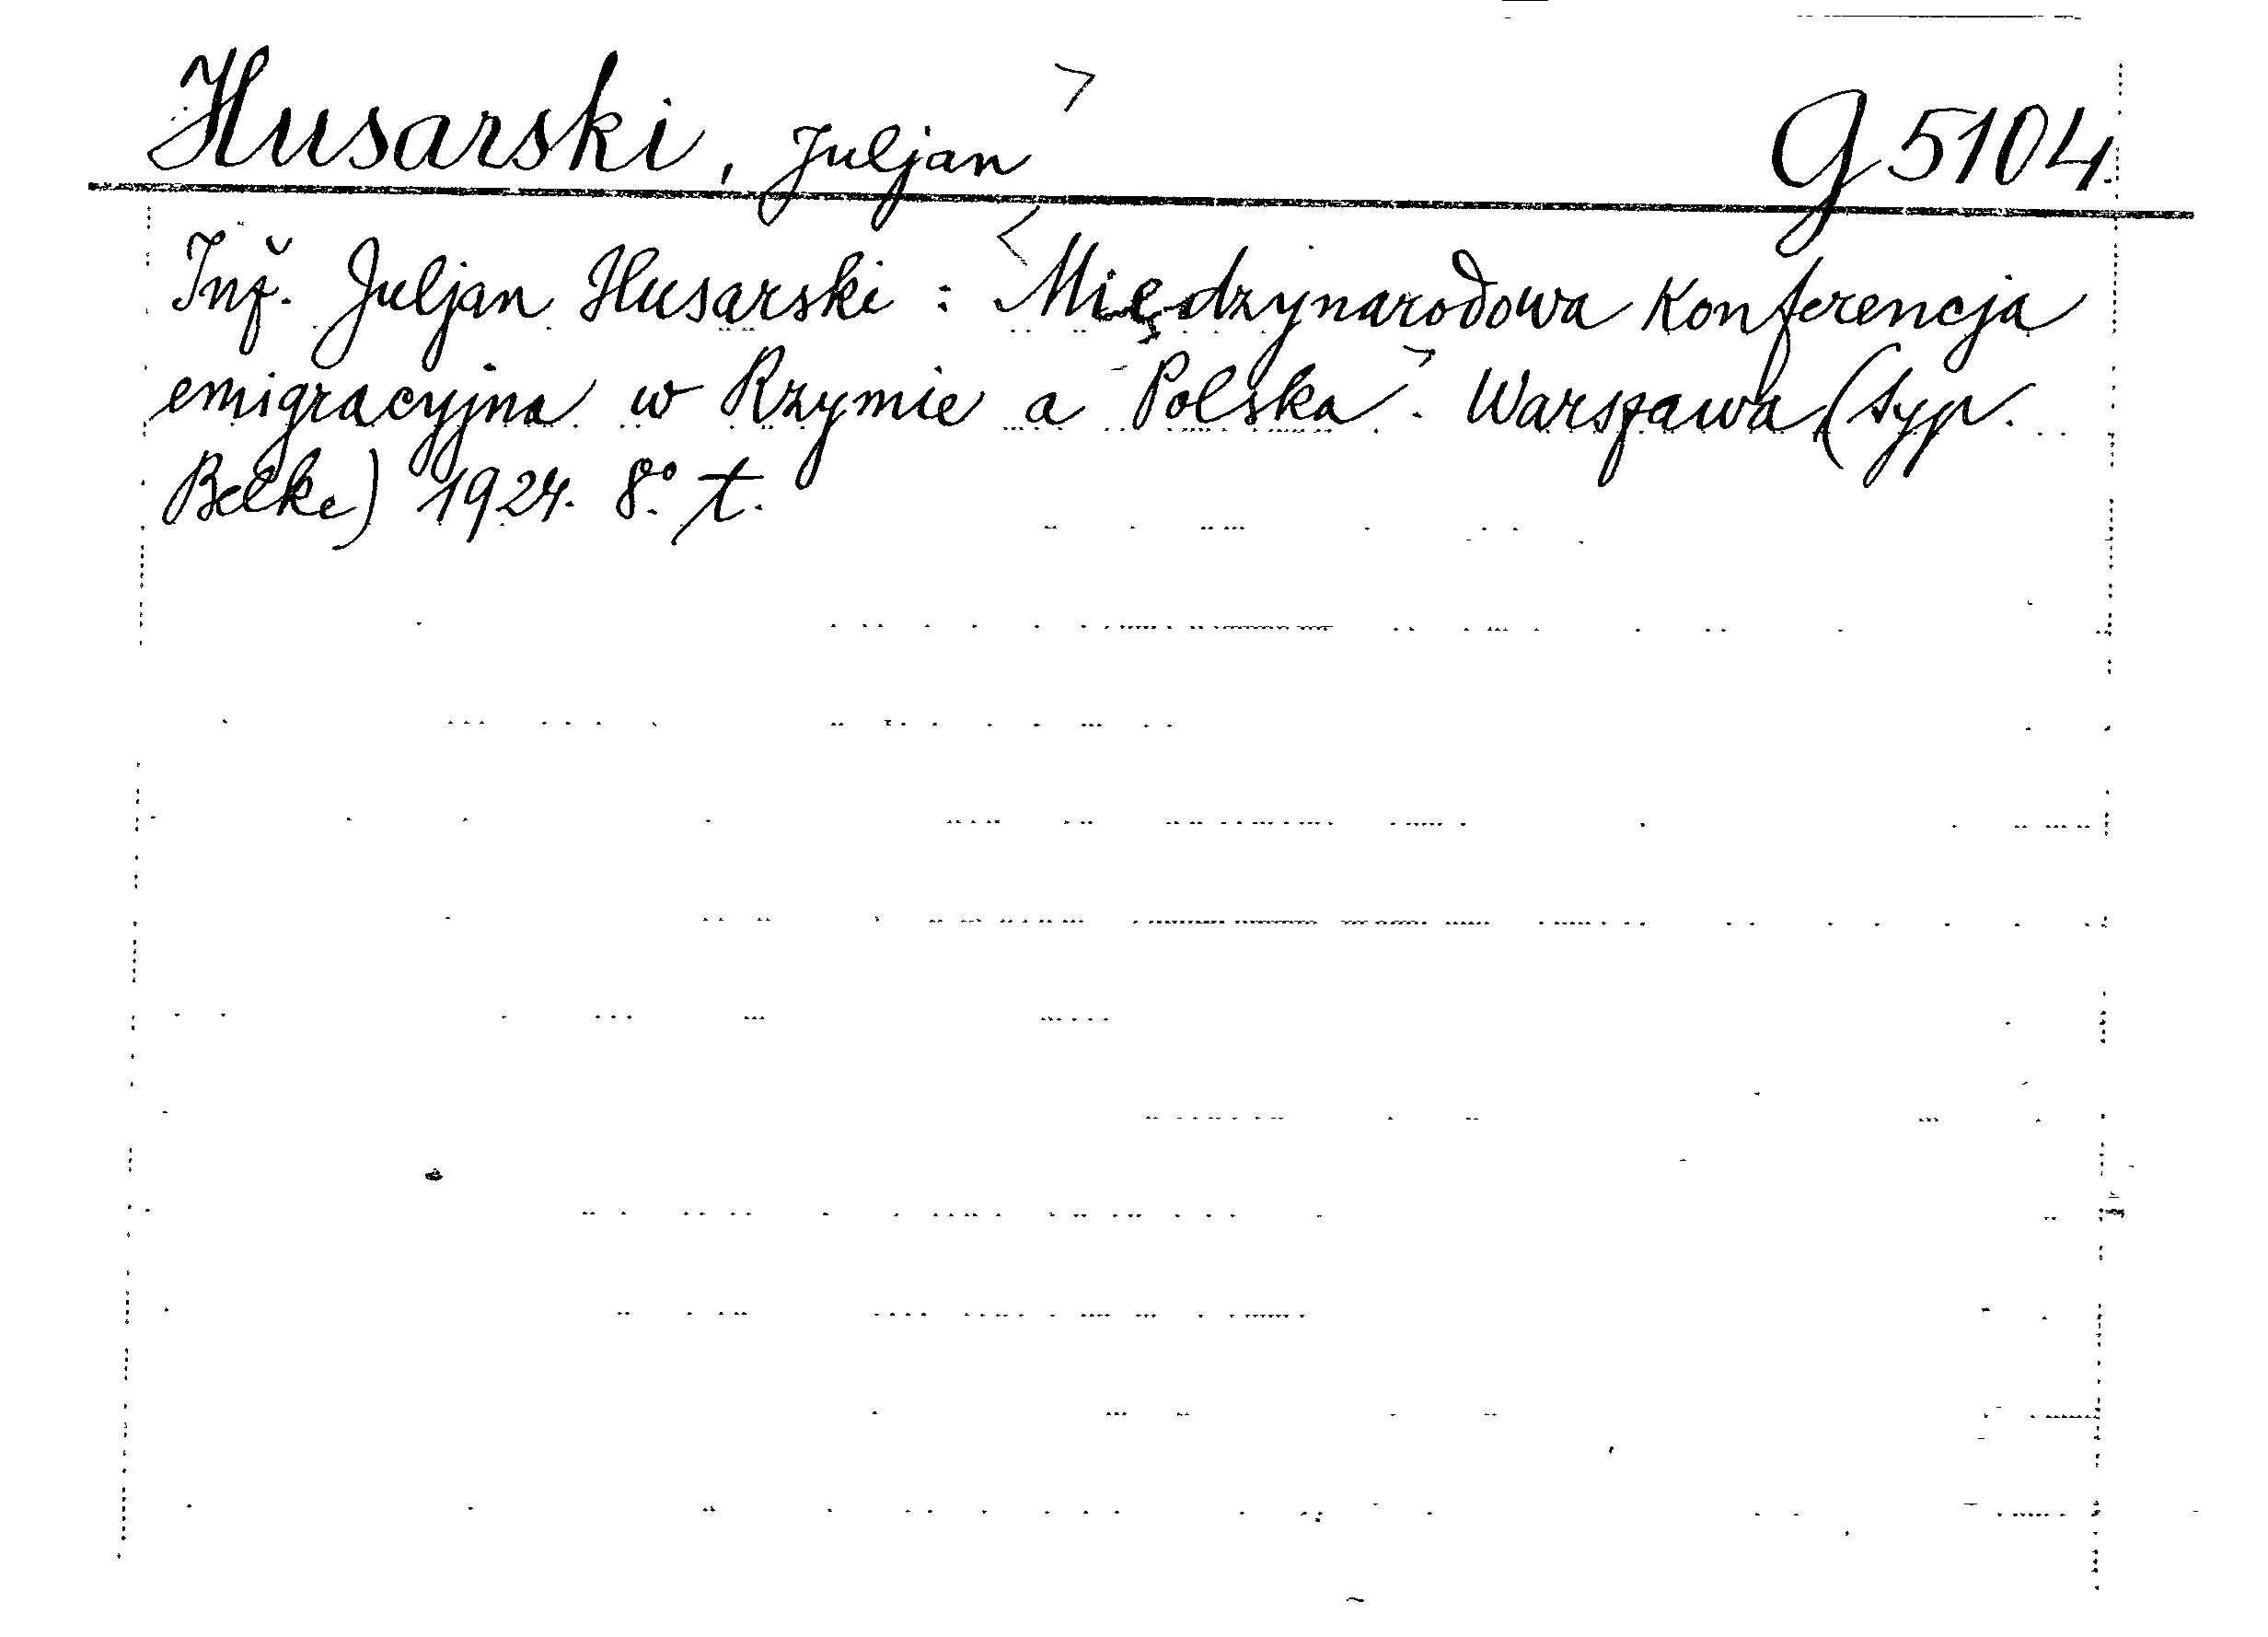 Husarski, Juljan G 5104
Inż. Juljan Husarski: Międzynarodowa Konferencja
emigracyjna w Rzymie a Polska. Warszawa, (typ.
Belke) 1924. 8°. t.